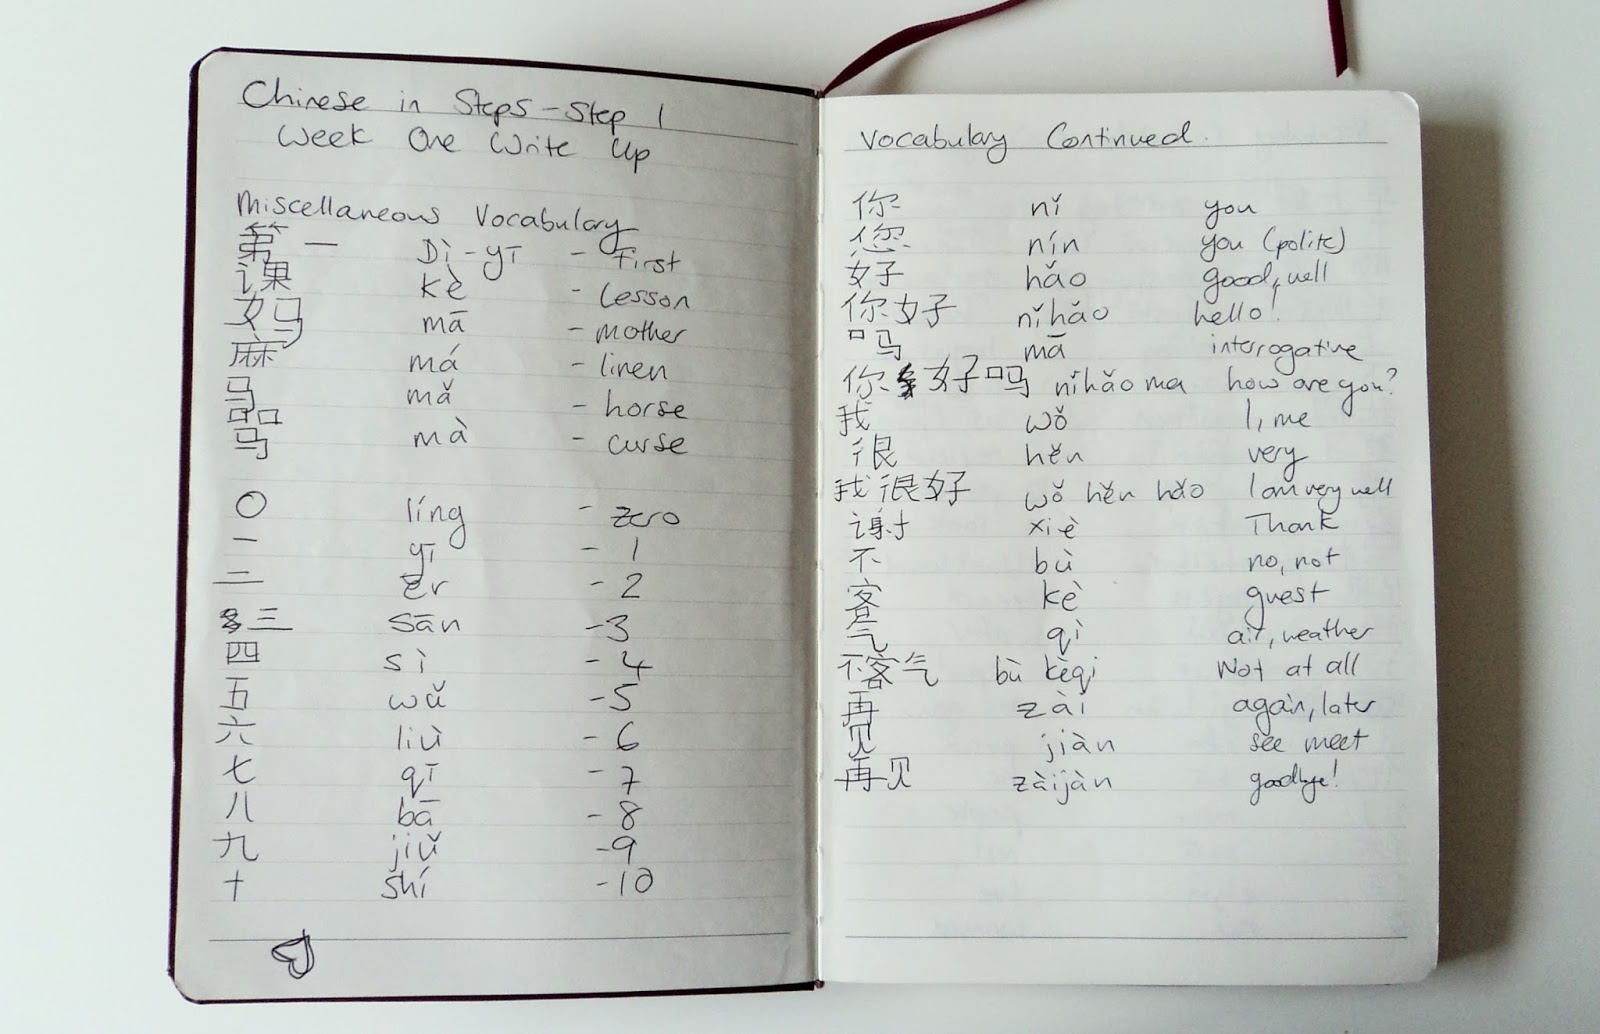 Chinese in Steps - Step 1
Week One Write Up
Miscellaneous Vocabulary
第一 Dì-yī - First
课 kè - Lesson
妈 mā - mother
麻 má - linen
马 mǎ - horse
骂 mà - curse
〇 líng - zero
一 yī - 1
二 èr - 2
三 sān - 3
四 sì - 4
五 wǔ - 5
六 liù - 6
七 qī - 7
八 bā - 8
九 jiǔ - 9
十 shí - 10
Vocabulary Continued.
你 nǐ you
您 nín you (polite)
好 hǎo good, well
你好 nǐhǎo hello!
吗 mā interrogative
你好吗 nǐhǎo ma how are you?
我 wǒ I, me
很 hěn very
我很好 wǒ hěn hǎo I am very well
谢 xiè Thank
不 bù no, not
客 kè guest
气 qì air, weather
不客气 bù kèqi Not at all
再 zài again, later
见 jiàn see meet
再见 zàijàn goodbye!